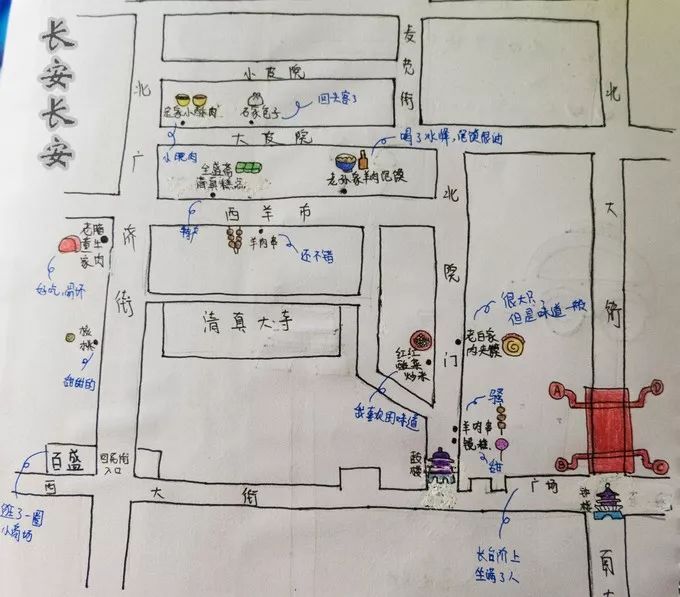 长安长安
小皮院
麦苋街
北广济街
定家小酥肉
小碗肉
石家包子
回头客了
大皮院
喝了冰峰,泡馍很油
全盛斋
清真糕点
老孙家羊肉泡馍
西羊市
特产
羊肉串
还不错
老煮一家
腊牛肉
好吃,闻环
清真大寺
北院门
很大只
但是味道一般
老白家
肉夹馍
红红
酸菜
炒米
我喜欢的味道
核桃
甜甜的
骚
羊肉串
镜糕
甜
北大街
A
B
C
D
百盛
回民街
入口
逛了一圈
小商场
西大街
鼓楼
广场
钟楼
长台阶上
坐满了人
南大